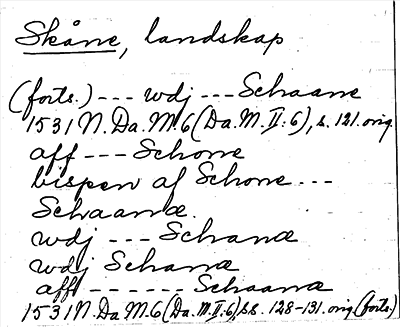 Skåne, landskap
(forts.) --- wdj --- Schaane
1531 N. Da. M. 6 (Da. M. II: 6), s. 121. orig.
aff --- Schone
bispen af Schone ---
Schaanæ.
wdj --- Schanæ
wdj Schanæ
afft ------ Schaanæ
1531 N. Da. M. 6 (Da. M. II: 6), ss. 128-131. orig (forts.)